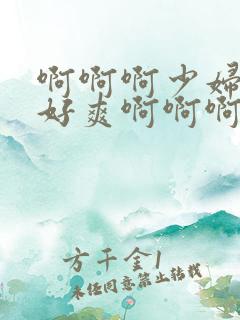 啊啊啊少婦
好爽啊啊啊
方千金1
未经同意禁止转载